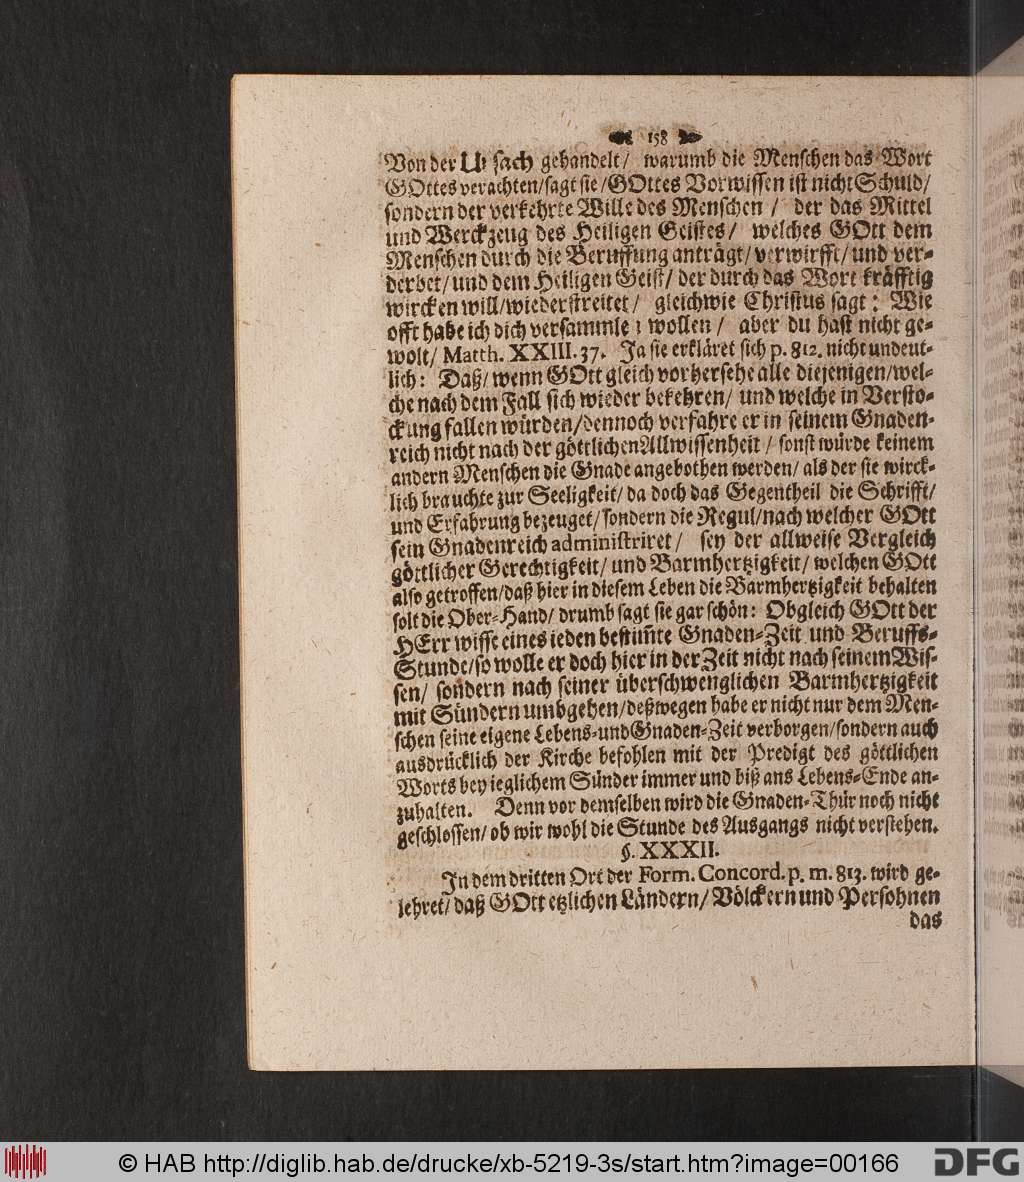 158
Von der Ursach gehandelt/ warumb die Menschen das Wort
GOttes verachten/sagt sie/GOttes Vorwissen ist nicht Schuld/
sondern der verkehrte Wille des Menschen/ der das Mittel
und Werckzeug des Heiligen Geistes/ welches GOtt dem
Menschen durch die Beruffung anträgt/verwirfft/und ver-
derbet/und dem Heiligen Geist/der durch das Wort kräfftig
wircken will/wiederstreitet/ gleichwie Christus sagt: Wie
offt habe ich dich versammlen wollen/ aber du hast nicht ge-
wolt/ Matth. XXIII. 37. Ja sie erkläret sich p. 812. nicht undeut-
lich: Daß/wenn GOtt gleich vorhersehe alle diejenigen/wel-
che nach dem Fall sich wieder bekehren/ und welche in Versto-
ckung fallen würden/dennoch verfahre er in seinem Gnaden-
reich nicht nach der göttlichen Allwissenheit/ sonst würde keinem
andern Menschen die Gnade angebothen werden/als der sie wirck-
lich brauchte zur Seeligkeit/da doch das Gegentheil die Schrifft/
und Erfahrung bezeuget/sondern die Regul/nach welcher GOtt
sein Gnadenreich administriret/ sey der allweise Vergleich
göttlicher Gerechtigkeit/und Barmhertzigkeit/welchen GOtt
also getroffen/daß hier in diesem Leben die Barmhertzigkeit behalten
solt die Ober-Hand/ drumb sagt sie gar schön: Obgleich GOtt der
HErr wisse eines ieden bestim̃te Gnaden-Zeit und Beruffs-
Stunde/so wolle er doch hier in der Zeit nicht nach seinem Wis-
sen/ sondern nach seiner überschwenglichen Barmhertzigkeit
mit Sündern umbgehen/deßwegen habe er nicht nur dem Men-
schen seine eigene Lebens-und Gnaden-Zeit verborgen/sondern auch
ausdrücklich der Kirche befohlen mit der Predigt des göttlichen
Worts bey ieglichem Sünder immer und biß ans Lebens-Ende an-
zuhalten. Denn vor demselben wird die Gnaden-Thür noch nicht
geschlossen/ob wir wohl die Stunde des Ausgangs nicht verstehen.
§. XXXII.
In dem dritten Ort der Form. Concord. p. m. 813. wird ge-
lehret/daß GOtt etzlichen Ländern/Völckern und Persohnen
das
© HAB http://diglib.hab.de/drucke/xb-5219-3s/start.htm?image=00166
DFG